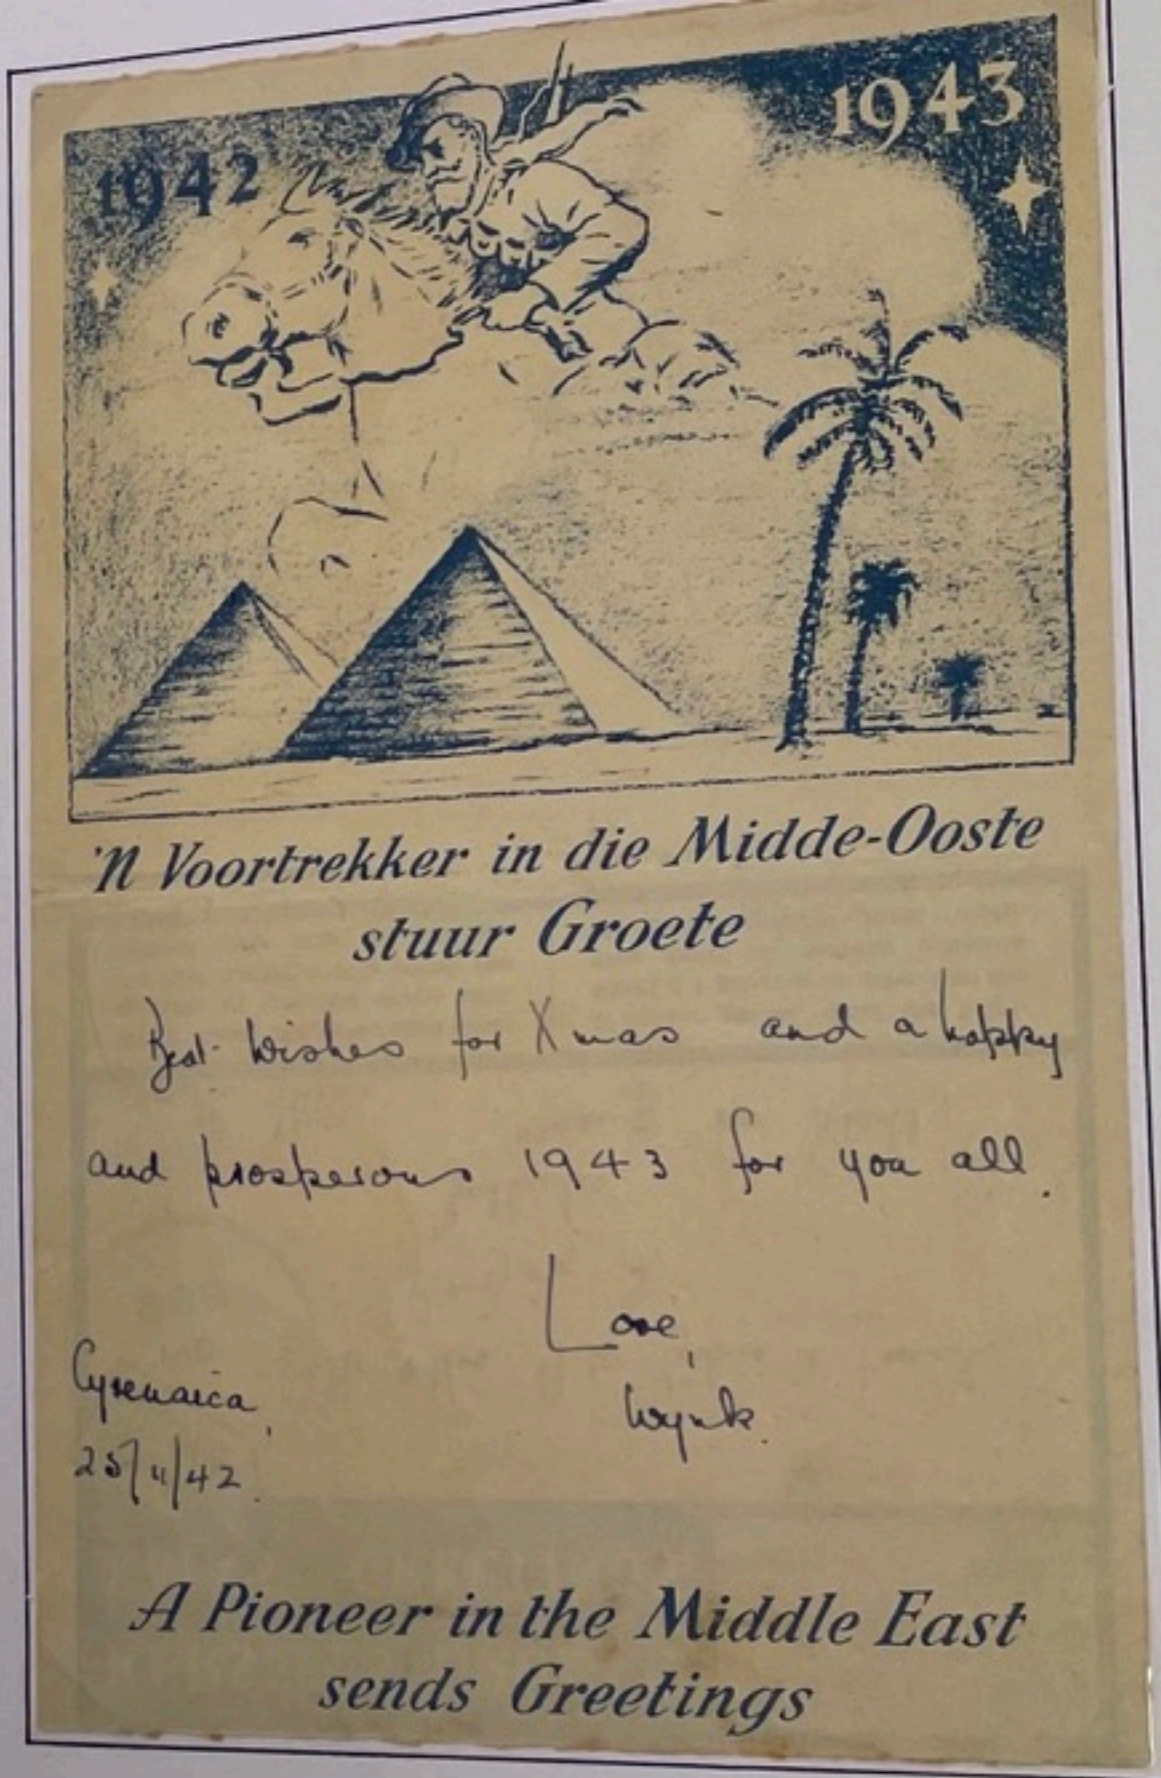 1942
1943
'n Voortrekker in die Midde-Ooste
stuur Groete
Best wishes for Xmas and a happy
and prosperous 1943 for you all.
Love,
Cyrenaica,
25/11/42.
A Pioneer in the Middle East
sends Greetings